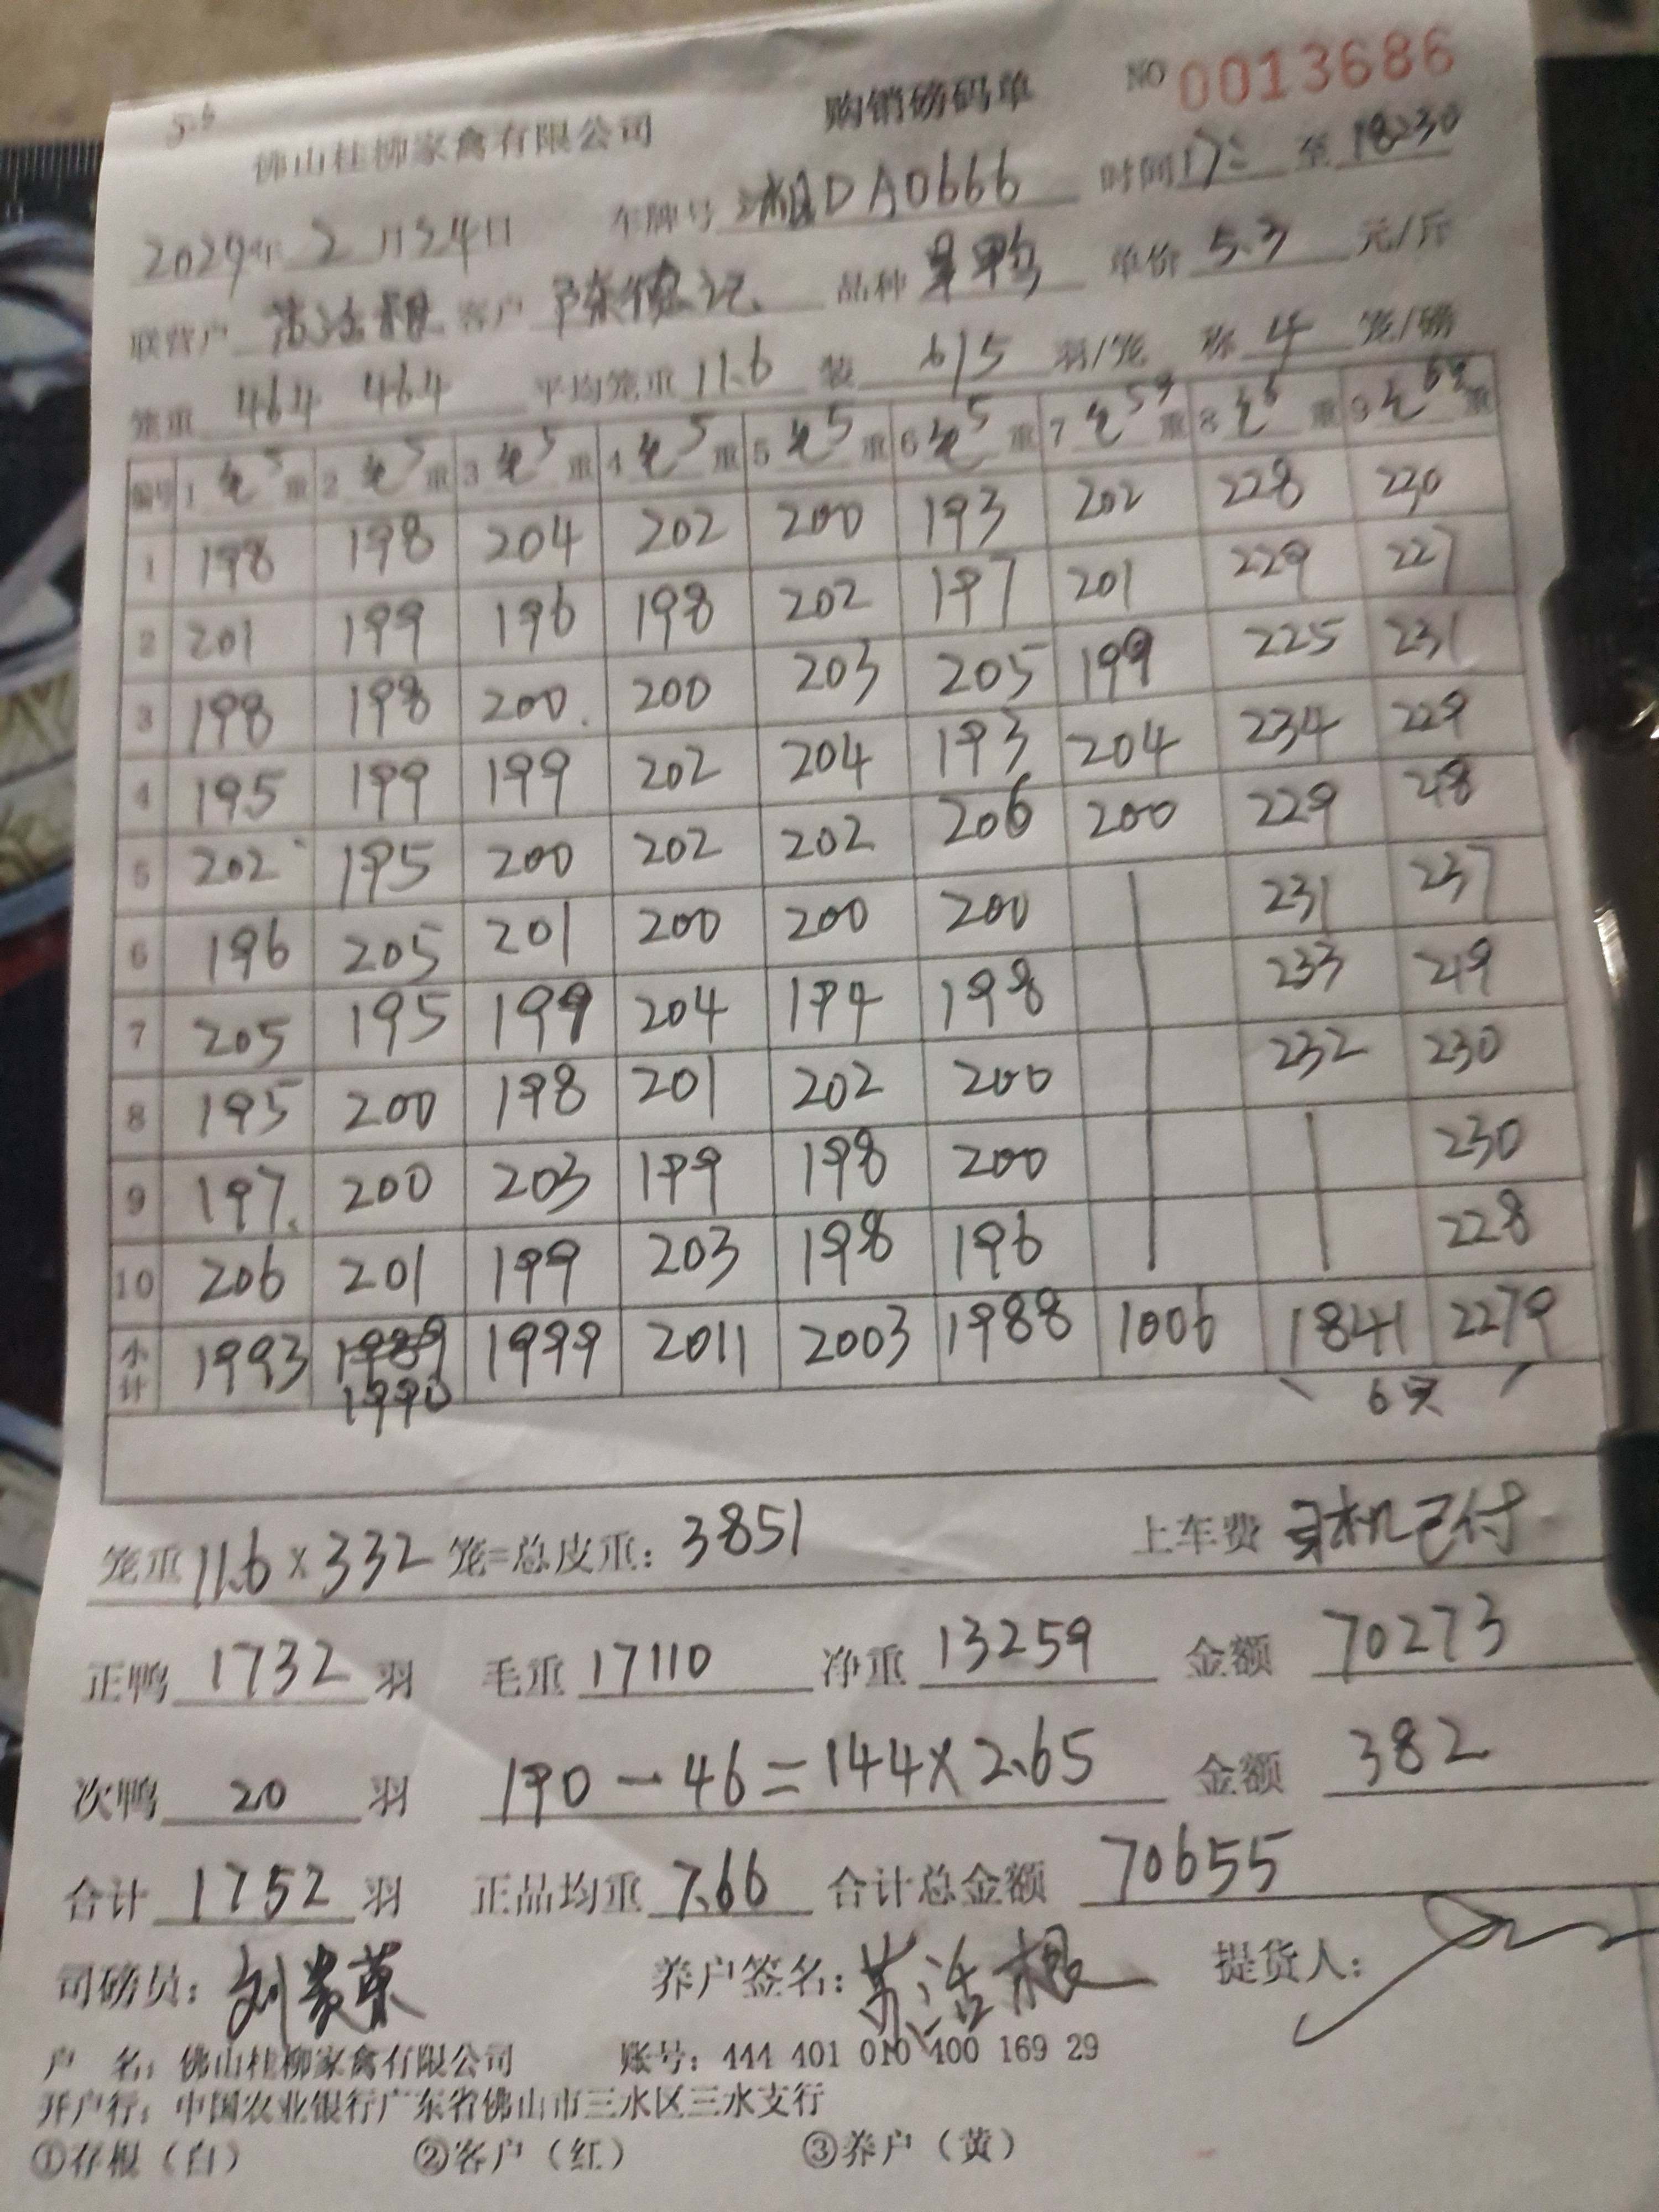 5.6
购销磅码单 NO 0013686
佛山桂柳家禽有限公司
2024年 2月24日 车牌号 湘DA0666 时间 17: 至 18:30
联营户 客户 品种 单价 5.3 元/斤
笼重 464 464 平均笼重 11.6 装 6/5 羽/笼 称 4 笼/磅
编号 1 5 重 2 5 重 3 5 重 4 5 重 5 5 重 6 5 重 7 重 8 6 重 9 重
1 198 198 204 202 200 193 202 228 230
2 201 199 196 198 202 197 201 229 227
3 198 198 200 200 203 205 199 225 231
4 195 199 199 202 204 193 204 234 229
5 202 195 200 202 202 206 200 229
6 196 205 201 200 200 200 231 237
7 205 195 199 204 194 198 233 219
8 195 200 198 201 202 200 232 230
9 197 200 203 199 198 200 230
10 206 201 199 203 198 196 228
小计 1993 1989 1999 2011 2003 1988 1006 1841 2279
1990 6只
笼重 11.6 × 332 笼=总皮重: 3851 上车费 司机已付
正鸭 1732 羽 毛重 17110 净重 13259 金额 70273
次鸭 20 羽 190 - 46 = 144 × 2.65 金额 382
合计 1752 羽 正品均重 7.66 合计总金额 70655
司磅员: 养户签名: 提货人:
户 名: 佛山桂柳家禽有限公司 账号: 444 401 010 400 169 29
开户行: 中国农业银行广东省佛山市三水区三水支行
①存根（白） ②客户（红） ③养户（黄）